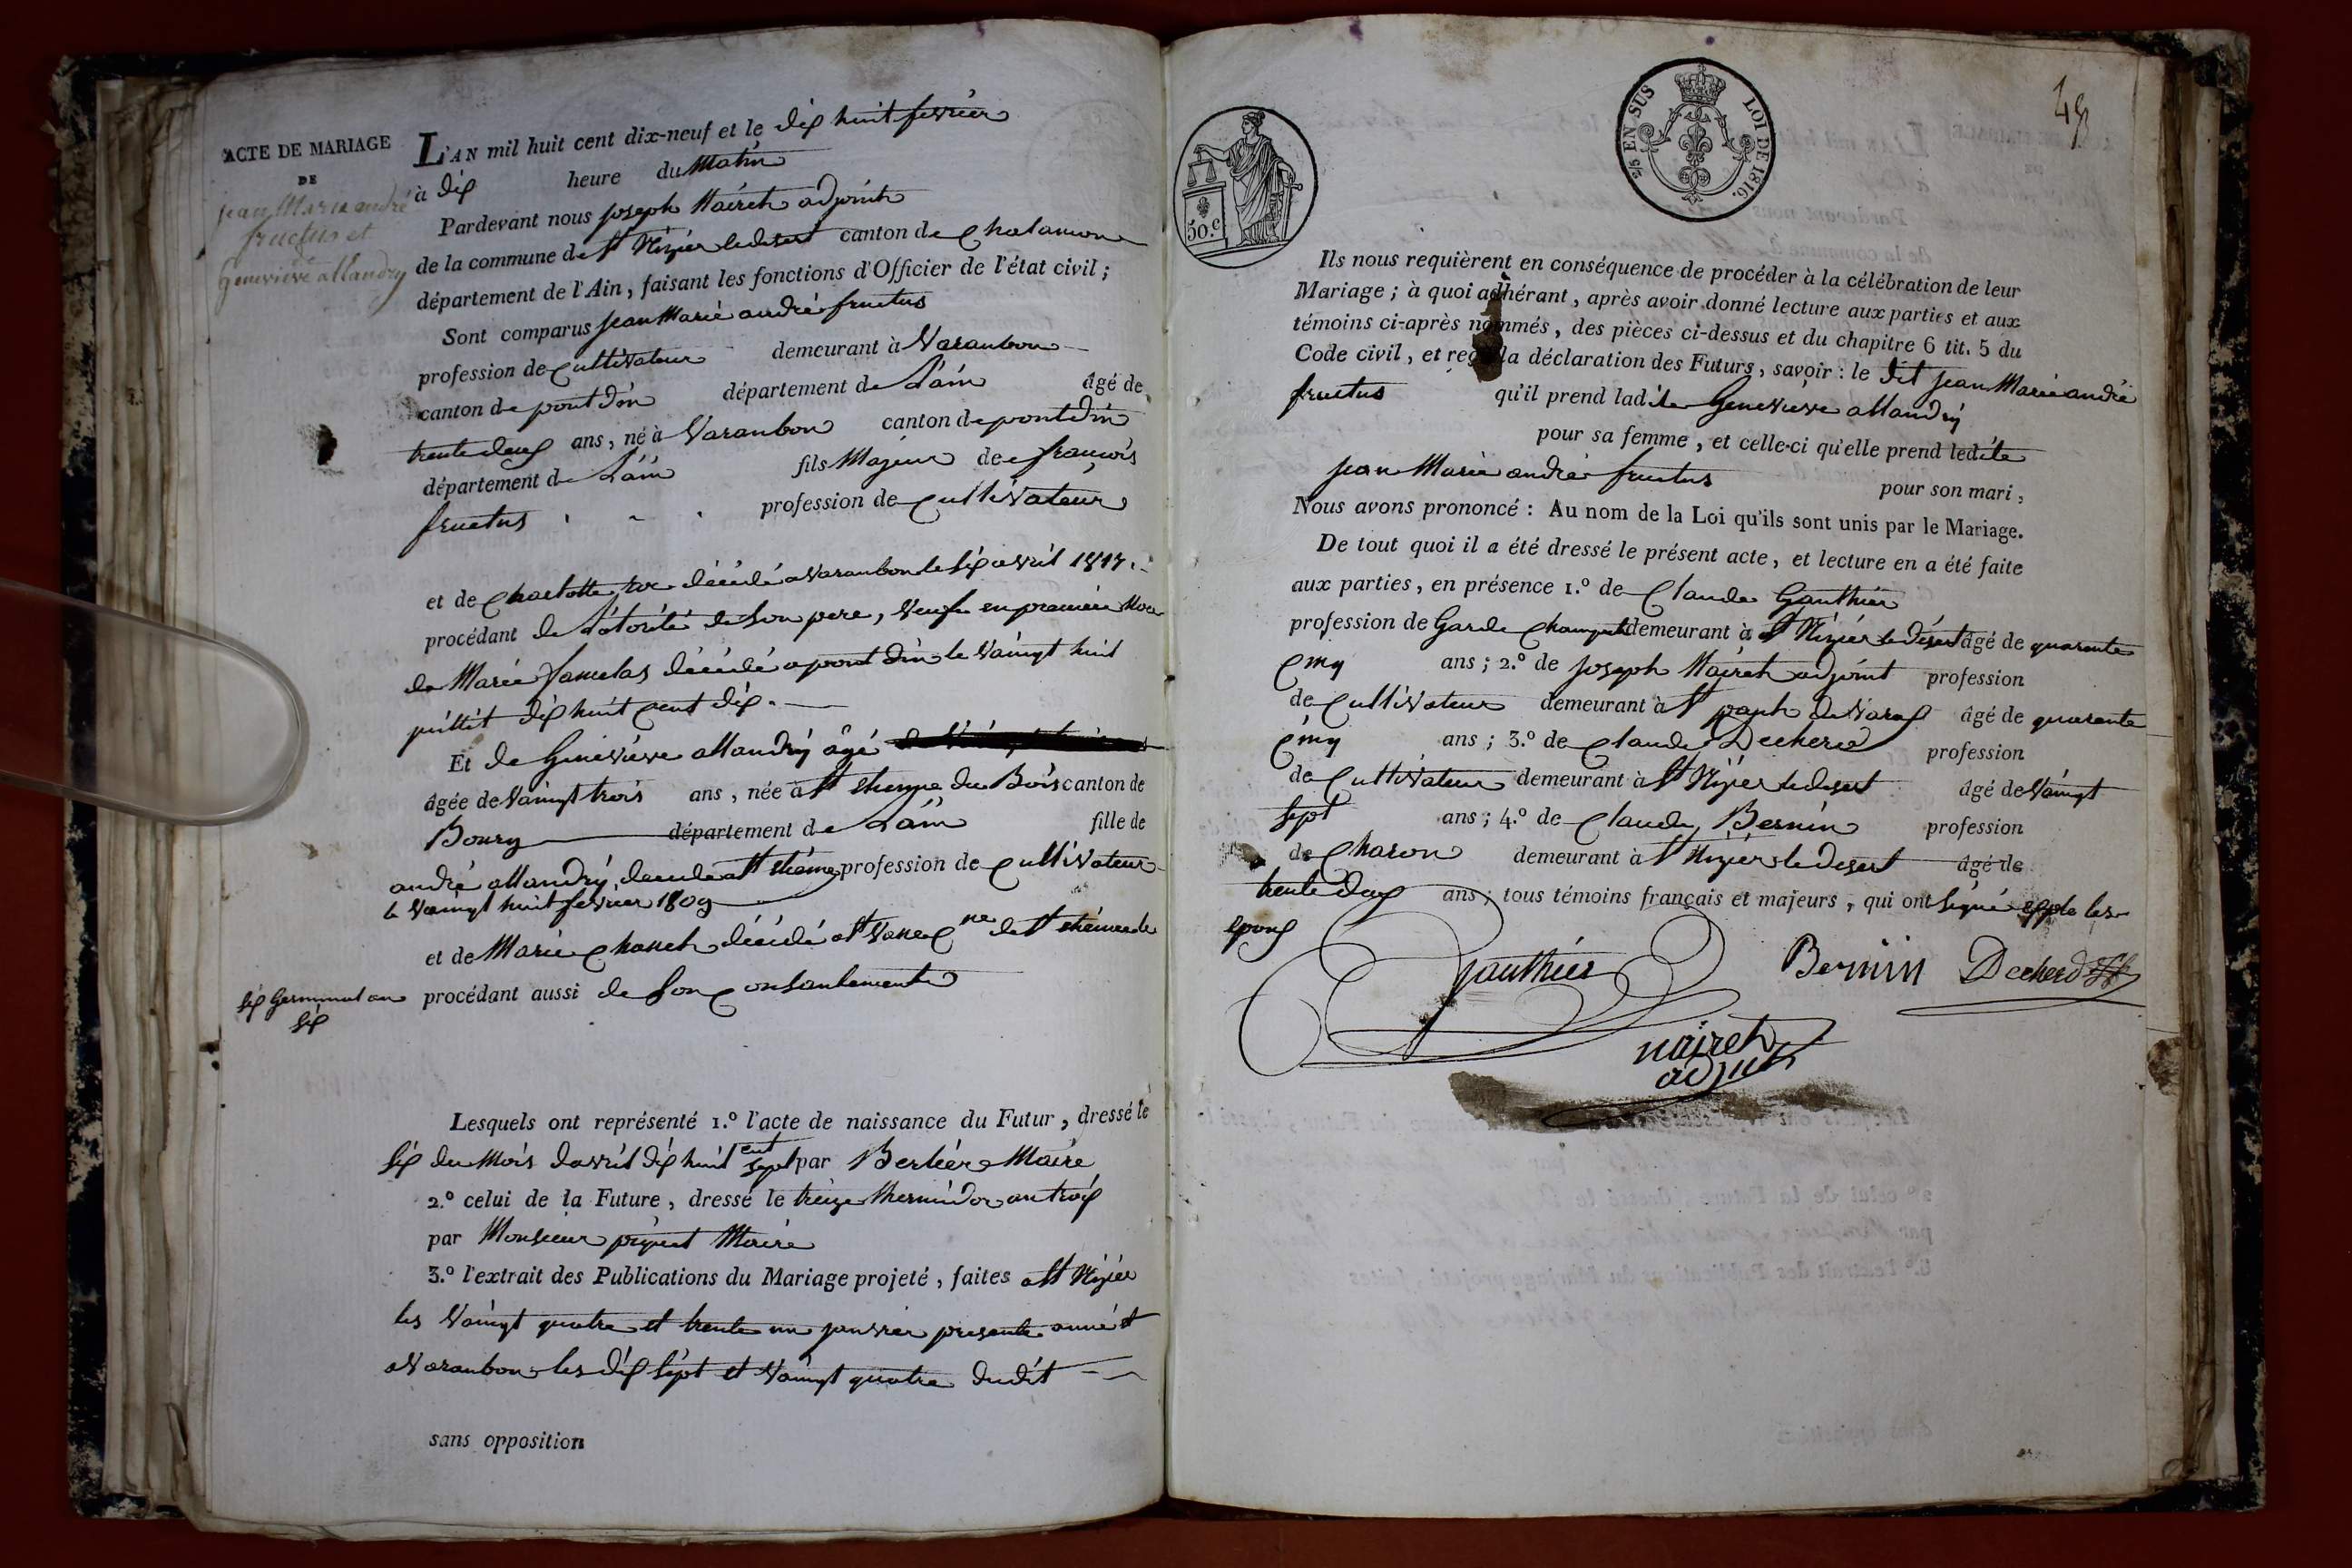 ACTE DE MARIAGE
DE
jean Marie andré
fructus et
de
genevieve allandry
L'AN mil huit cent dix-neuf et le dix huit fevrier
à dix heure du Matin
Pardevant nous joseph Nairet adjoint
de la commune de St Nizier le desert canton de Chalamon
département de l'Ain, faisant les fonctions d'Officier de l'état civil;
Sont comparus jean Marie andré fructus
profession de Cultivateur demeurant à Varanbon
canton de pont din département de Lain âgé de
trente deux ans, né à Varanbon canton de pont din
département de Lain fils Majeur de francois
fructus profession de Cultivateur
et de Charlotte roc décédé a Varanbon le six avril 1817.
procédant de Lotorité de Son pere, Veufe en premiere Noce
de Marie décédé a pont din le Vaingt huit
juillit dix huit cent dix.
Et de Genevieve allandry âgé
âgée de Vaingt trois ans, née à St etienne du Bois canton de
Bourg département de Lain fille de
andré allandry decede a St etiene profession de Cultivateur
le Vaingt huit fevrier 1809
et de Marie Chanet décédé a St etiene de
six Germinal an procédant aussi de Son Consantemente
six
Lesquels ont représenté 1.º l'acte de naissance du Futur, dressé le
six du Mois davril dix huit cent sept par Berlier Maire
2.º celui de la Future, dressé le treize thermidor an troix
par Monsieur piquet Maire
3.º l'extrait des Publications du Mariage projeté, faites a St Nizier
les Vaingt quatre et trente un janvier presente anné et
a Varanbon les dix sept et Vaingt quatre dudit
sans opposition
50.c
2/5 EN SUS LOI DE 1816.
Ils nous requièrent en conséquence de procéder à la célébration de leur
Mariage; à quoi adhérant, après avoir donné lecture aux parties et aux
témoins ci-après nommés, des pièces ci-dessus et du chapitre 6 tit. 5 du
Code civil, et reçu la déclaration des Futurs, savoir: le dit jean Marie andré
fructus qu'il prend ladite Genevieve allandry
pour sa femme, et celle-ci qu'elle prend ledite
jean Marie andré fructus pour son mari,
Nous avons prononcé: Au nom de la Loi qu'ils sont unis par le Mariage.
De tout quoi il a été dressé le présent acte, et lecture en a été faite
aux parties, en présence 1.º de Claude Gauthier
profession de Garde Champet demeurant à St Nizier le Désert âgé de quarente
Cinq ans; 2.º de joseph Nairet adjoint profession
de Cultivateur demeurant à St de Varax âgé de quarente
Cinq ans; 3.º de Claude Decherd profession
de Cultivateur demeurant à St Nizier le desert âgé de Vaingt
sept ans; 4.º de Claude Bernin profession
de Charon demeurant à St Nizier le desert âgé de
trente deux ans; tous témoins français et majeurs, qui ont signé les
epoux
Gauthier Bernin Decherd
nairet
adjoint